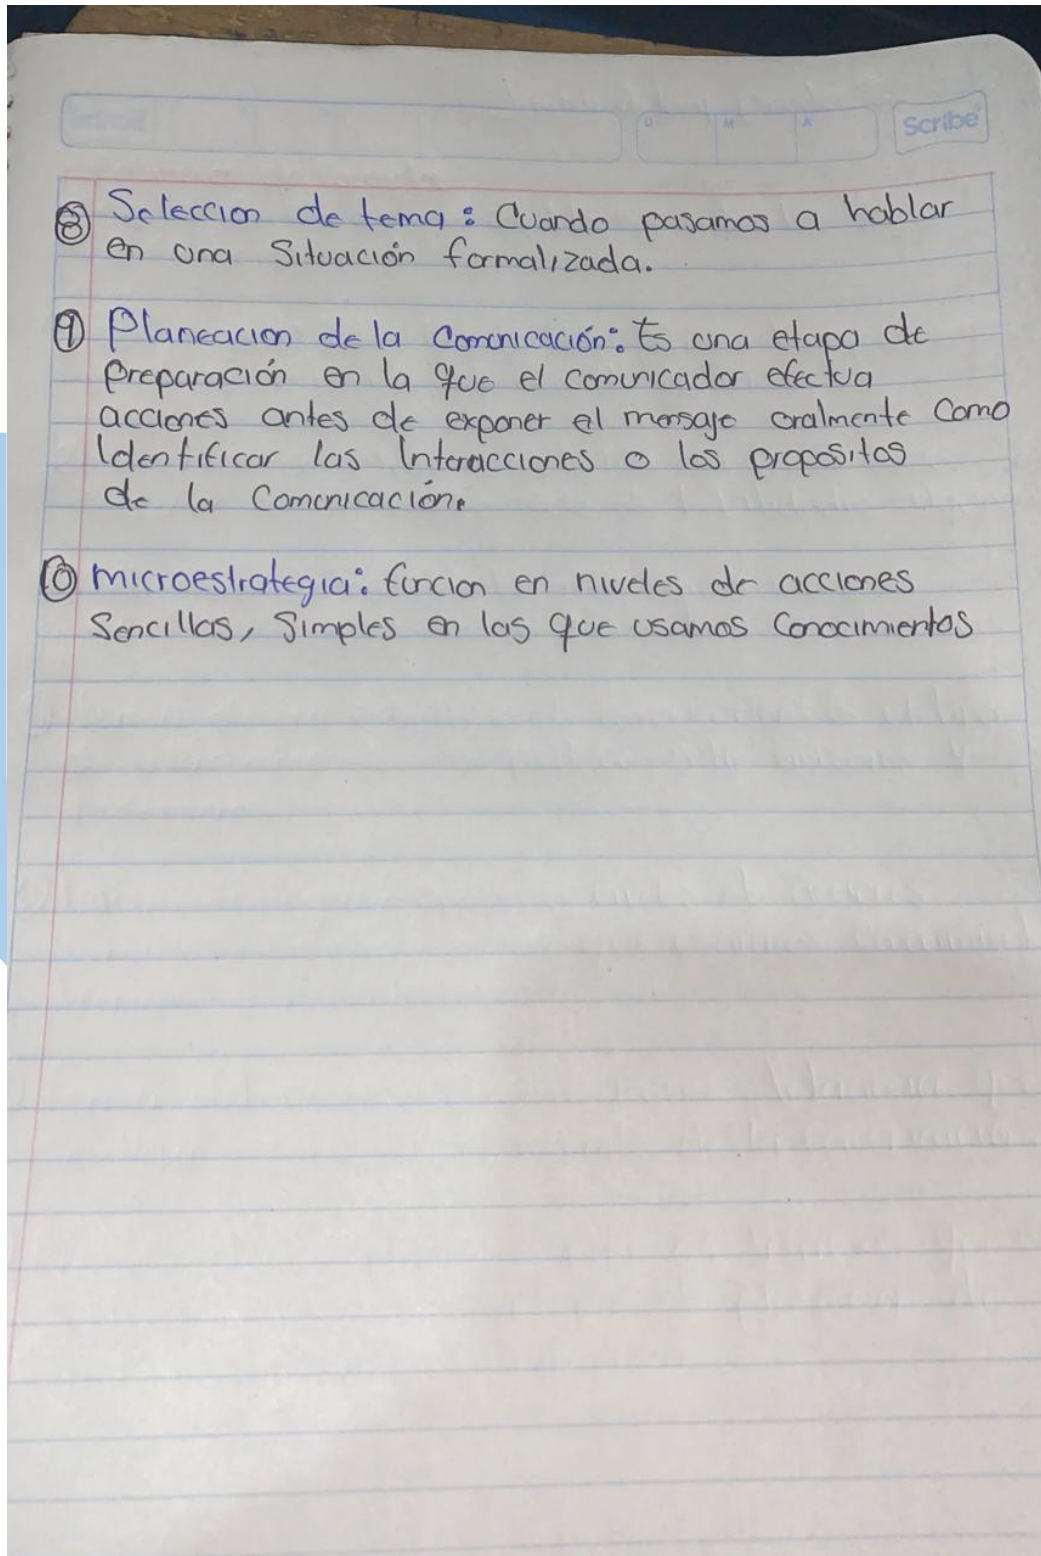 Scribe
D M A
⑧ Seleccion de tema: Cuando pasamos a hablar
en una Situación formalizada.
⑨ Planeacion de la Comunicación: Es una etapa de
Preparación en la que el comunicador efectua
acciones antes de exponer el mensaje oralmente Como
Identificar las Interacciones o los propositos
de la Comunicación.
⑩ microestrategia: funcion en niveles de acciones
Sencillas, Simples en las que usamos Conocimientos